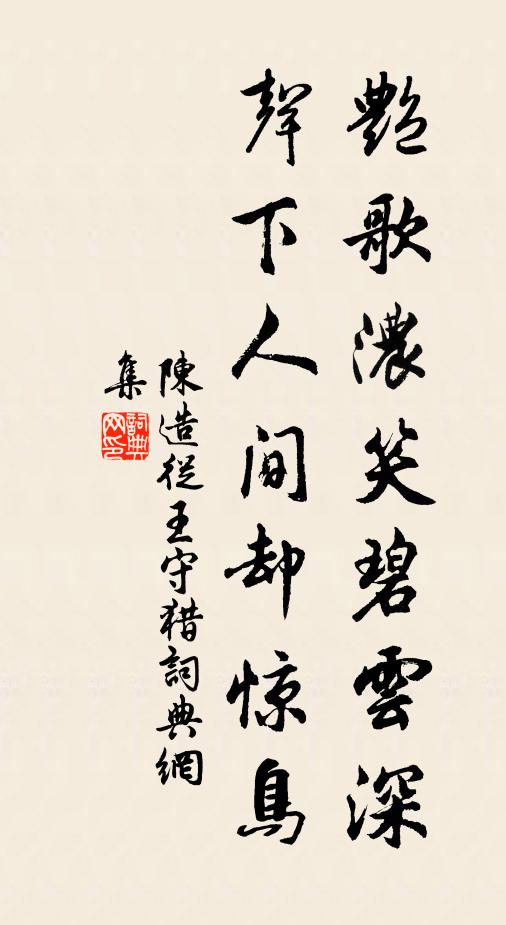 艷歌濃笑碧雲深
聲下人间却惊鳥
陳造從王守猎詞典網
集
詞典网印